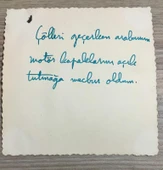 Çölleri geçerken arabamın
motör kapaklarını açık
tutmağa mecbur oldum.